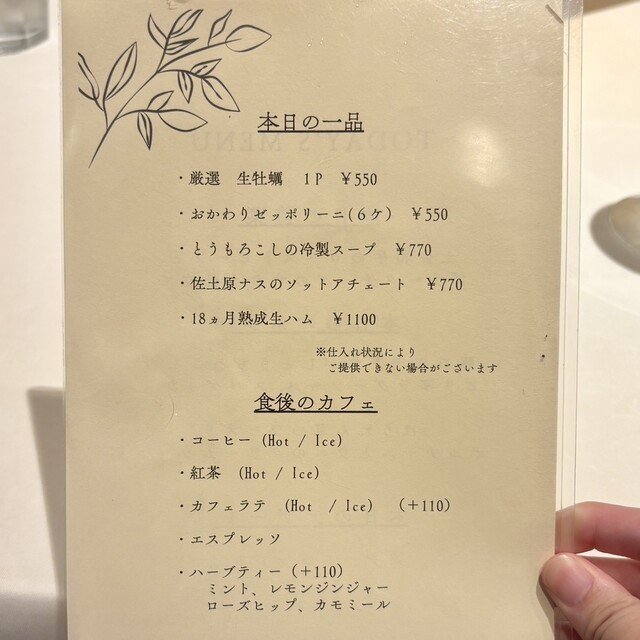 本日の一品
・厳選　生牡蠣　１P　￥550
・おかわりゼッポリーニ(６ケ)　￥550
・とうもろこしの冷製スープ　￥770
・佐土原ナスのソットアチェート　￥770
・18ヵ月熟成生ハム　￥1100
※仕入れ状況により
ご提供できない場合がございます
食後のカフェ
・コーヒー (Hot / Ice)
・紅茶　(Hot / Ice)
・カフェラテ　(Hot　/ Ice)　(＋110)
・エスプレッソ
・ハーブティー (＋110)
ミント、レモンジンジャー
ローズヒップ、カモミール